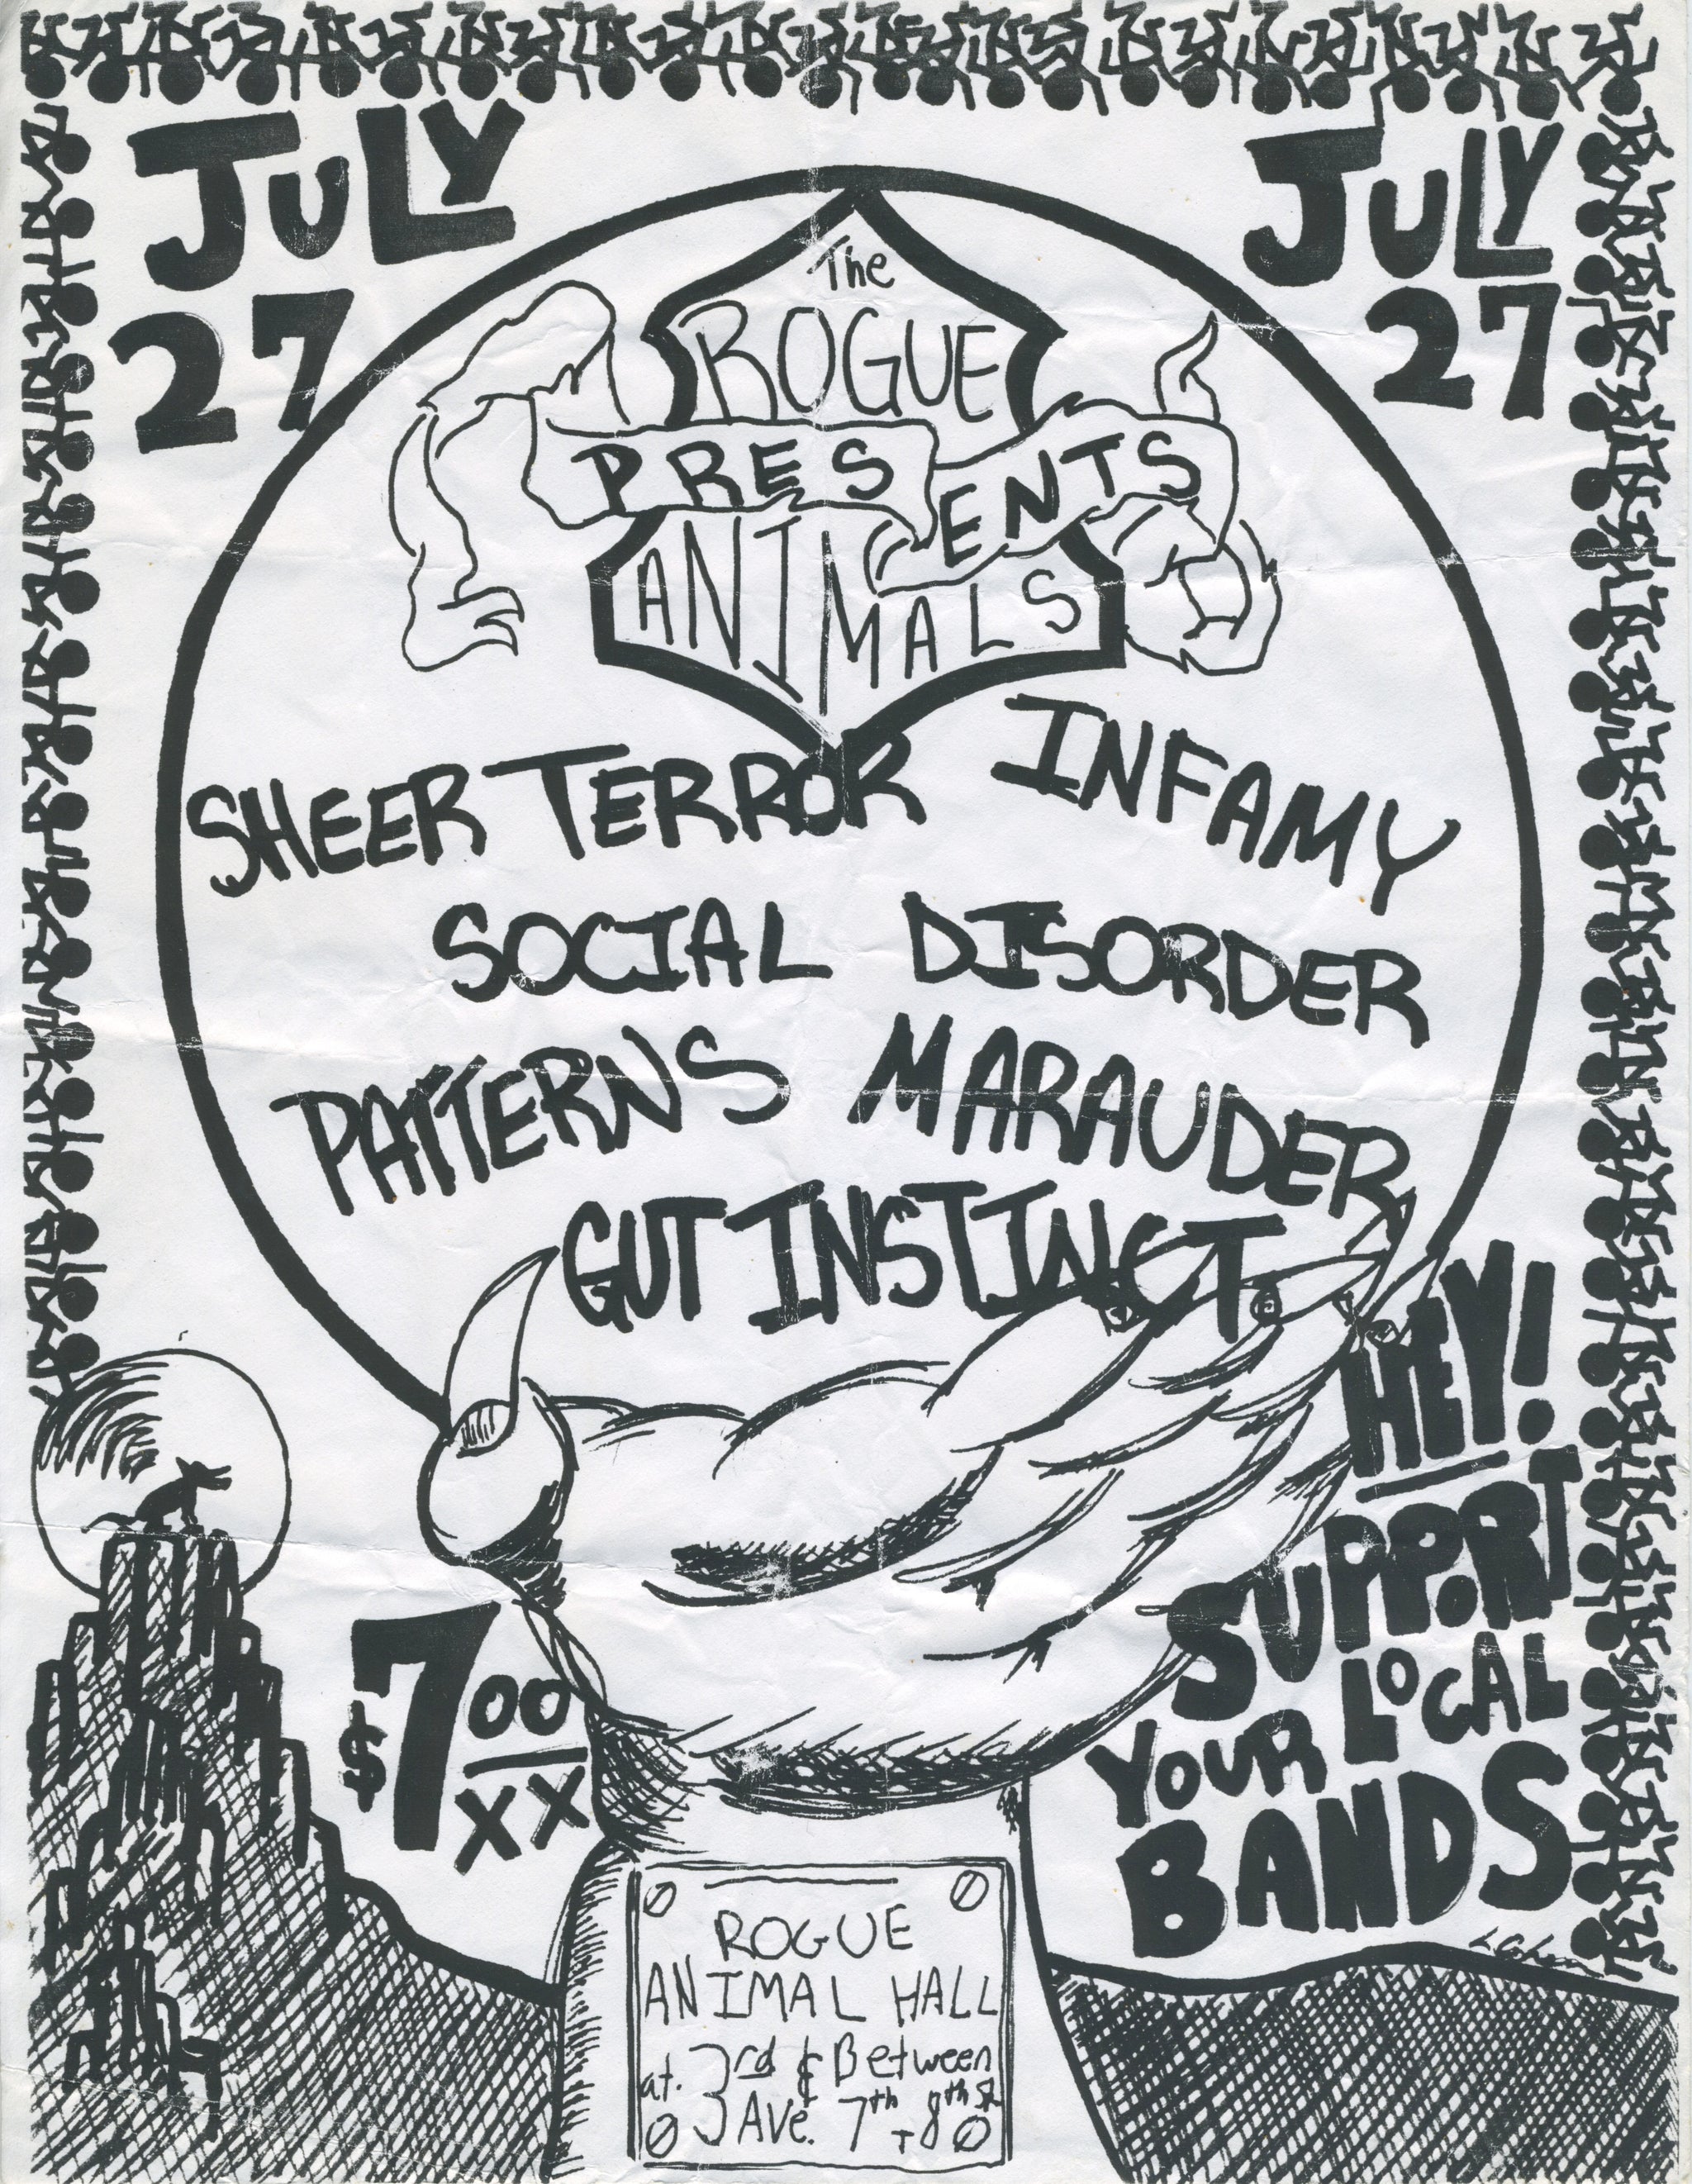 JULY
27
JULY
27
The
ROGUE
PRESENTS
ANIMALS
SHEER TERROR INFAMY
SOCIAL DISORDER
PATTERNS MARAUDER
GUT INSTINCT
HEY!
SUPPORT
YOUR LOCAL
BANDS
$7 00
XX
ROGUE
ANIMAL HALL
at. 3rd & Between
3 Ave. 7th + 8th St.